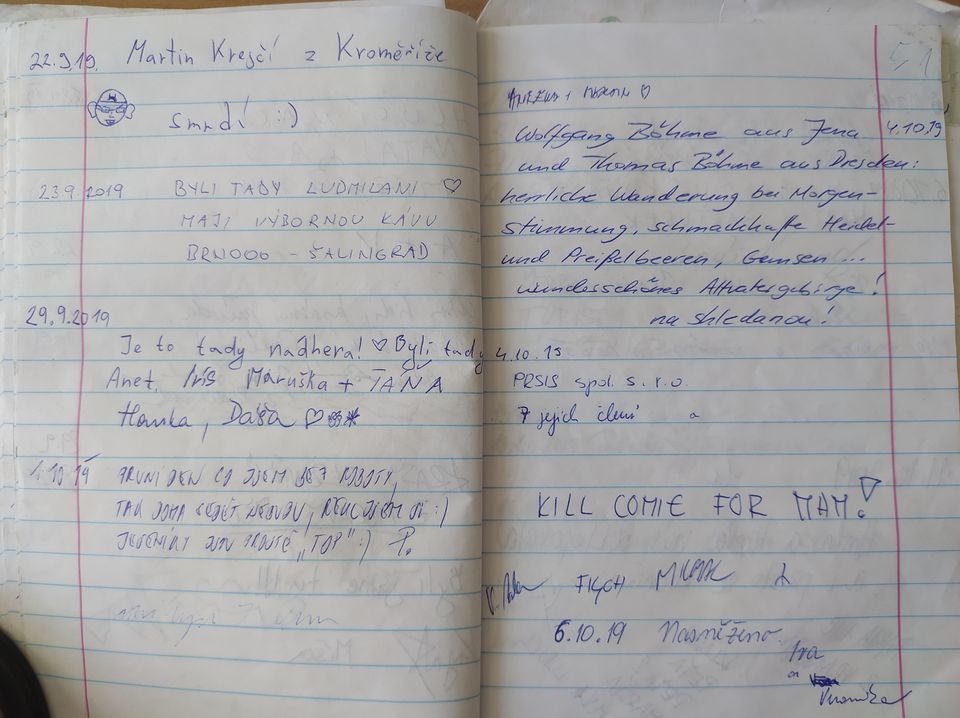 22.9.19. Martin Krejčí z Kroměříže
smrdí :)
23.9.2019 BYLI TADY LUDMILANI ♡
MAJI VÝBORNOU KÁVU
BRNOOO - ŠALINGRAD
29.9.2019
Je to tady nádhera! ♡ Byli tady
Anet, Iris Maruška + TÁŇA
Hanka, Dáša ♡
1.10.19 PRVNÍ DEN CO JSEM BEZ ROBOTY,
TAK DOMA SEDĚT NEBUDU, ŘEKL JSEM SI :)
JESENÍKY JSOU PROSTĚ „TOP" :) P.
51
♡
Wolfgang Böhme aus Jena 4.10.19
und Thomas Böhme aus Dresden:
herrliche Wanderung bei Morgen-
stimmung, schmackhafte Heidel-
und Preißelbeeren, Gemsen ...
wunderschönes Altvatergebirge!
na shledanou!
4.10.19
PRSIS spol. s. r. o.
7 jejich členů a
KILL COMIE FOR MAM!
6.10.19 Nasněženo
Iva
Veronika